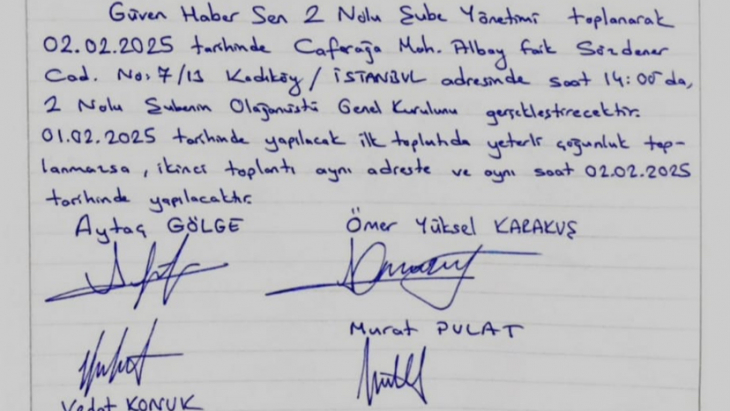 Güven Haber Sen 2 Nolu Şube Yönetimi toplanarak
02.02.2025 tarihinde Caferağa Mah. Albay Faik Sözdener
Cad. No: 7/13 Kadıköy / İSTANBUL adresinde saat 14:00'da,
2 Nolu Şubenin Olağanüstü Genel Kurulunu gerçekleştirecektir.
01.02.2025 tarihinde yapılacak ilk toplutıda yeterli çoğunluk top-
lanmazsa, ikinci toplantı aynı adreste ve aynı saat 02.02.2025
tarihinde yapılacaktır.
Aytaç GÖLGE Ömer Yüksel KARAKUŞ
Murat PULAT
Vedat KONUK